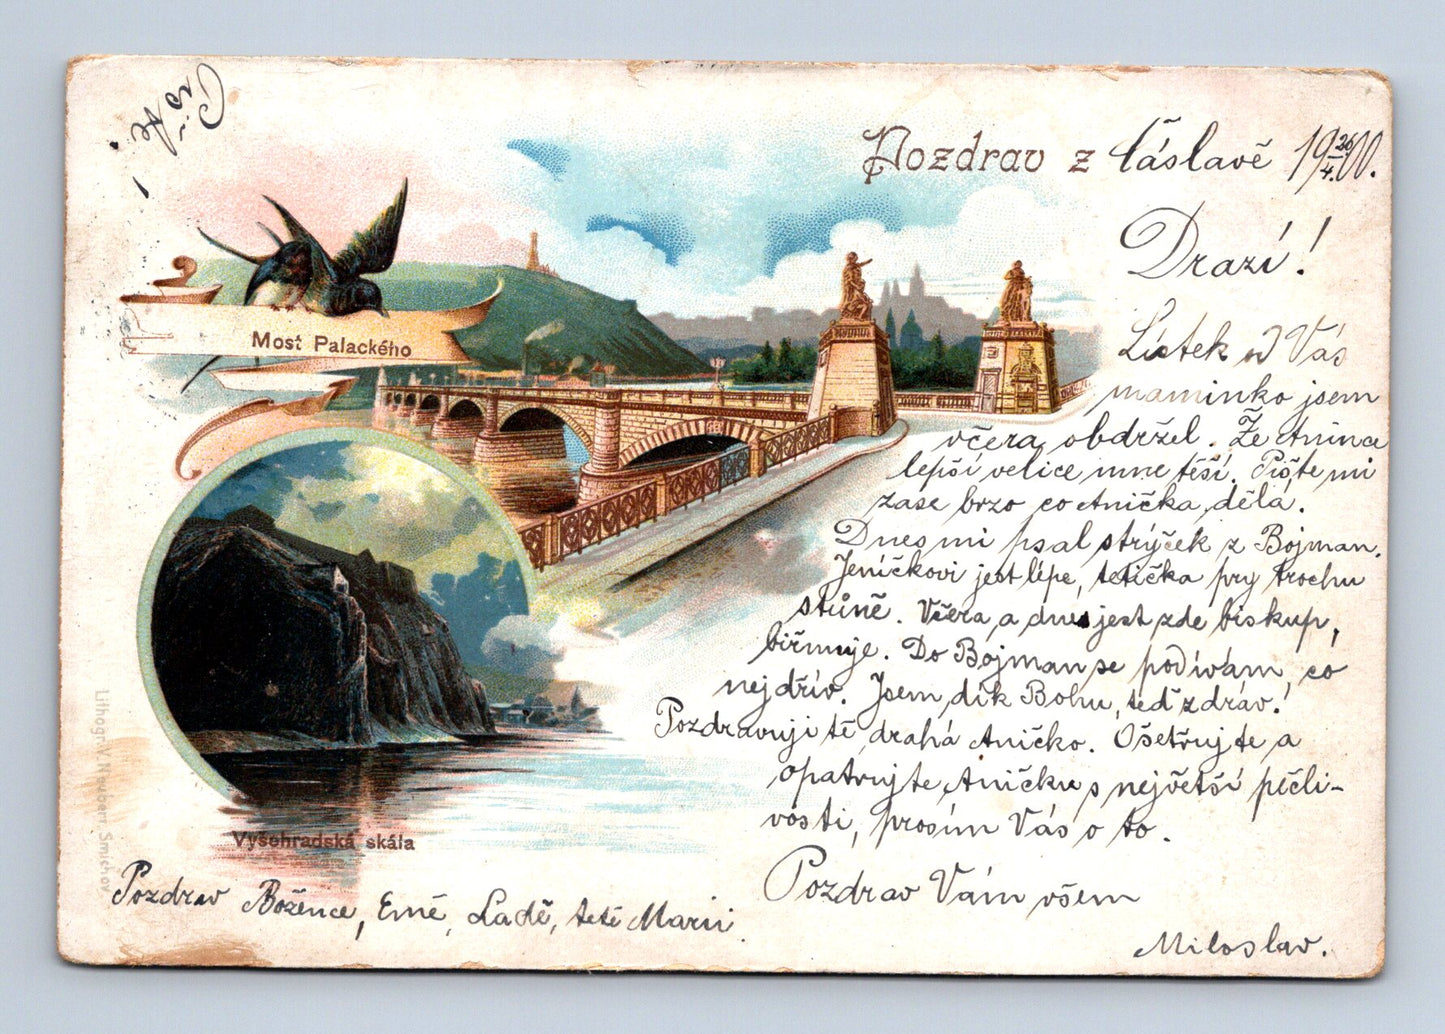 Pište!
Pozdrav z Čáslavě 19 26/4. 00.
Drazí!
Lístek od Vás
maminko jsem
včera obdržel. Že Anince
lépší velice mne těší. Pište mi
zase brzo co Anička dělá.
Dnes mi psal strýček z Bojman.
Jeníčkovi jest lépe, tetička prý trochu
stůně. Včera a dnes jest zde biskup,
biřmuje. Do Bojman se podívám, co
nejdřív. Jsem, dík Bohu, teď zdráv!
Pozdravuji tě drahá Aničko. Ošetřujte a
opatrujte Aničku s největší péčli-
vosti, prosím Vás o to.
Pozdrav Vám všem
Miloslav.
Pozdrav Božence, Emě, Ladě, tetě Marii.
Most Palackého
Vyšehradská skála
Lithogr. V. Neubert Smíchov